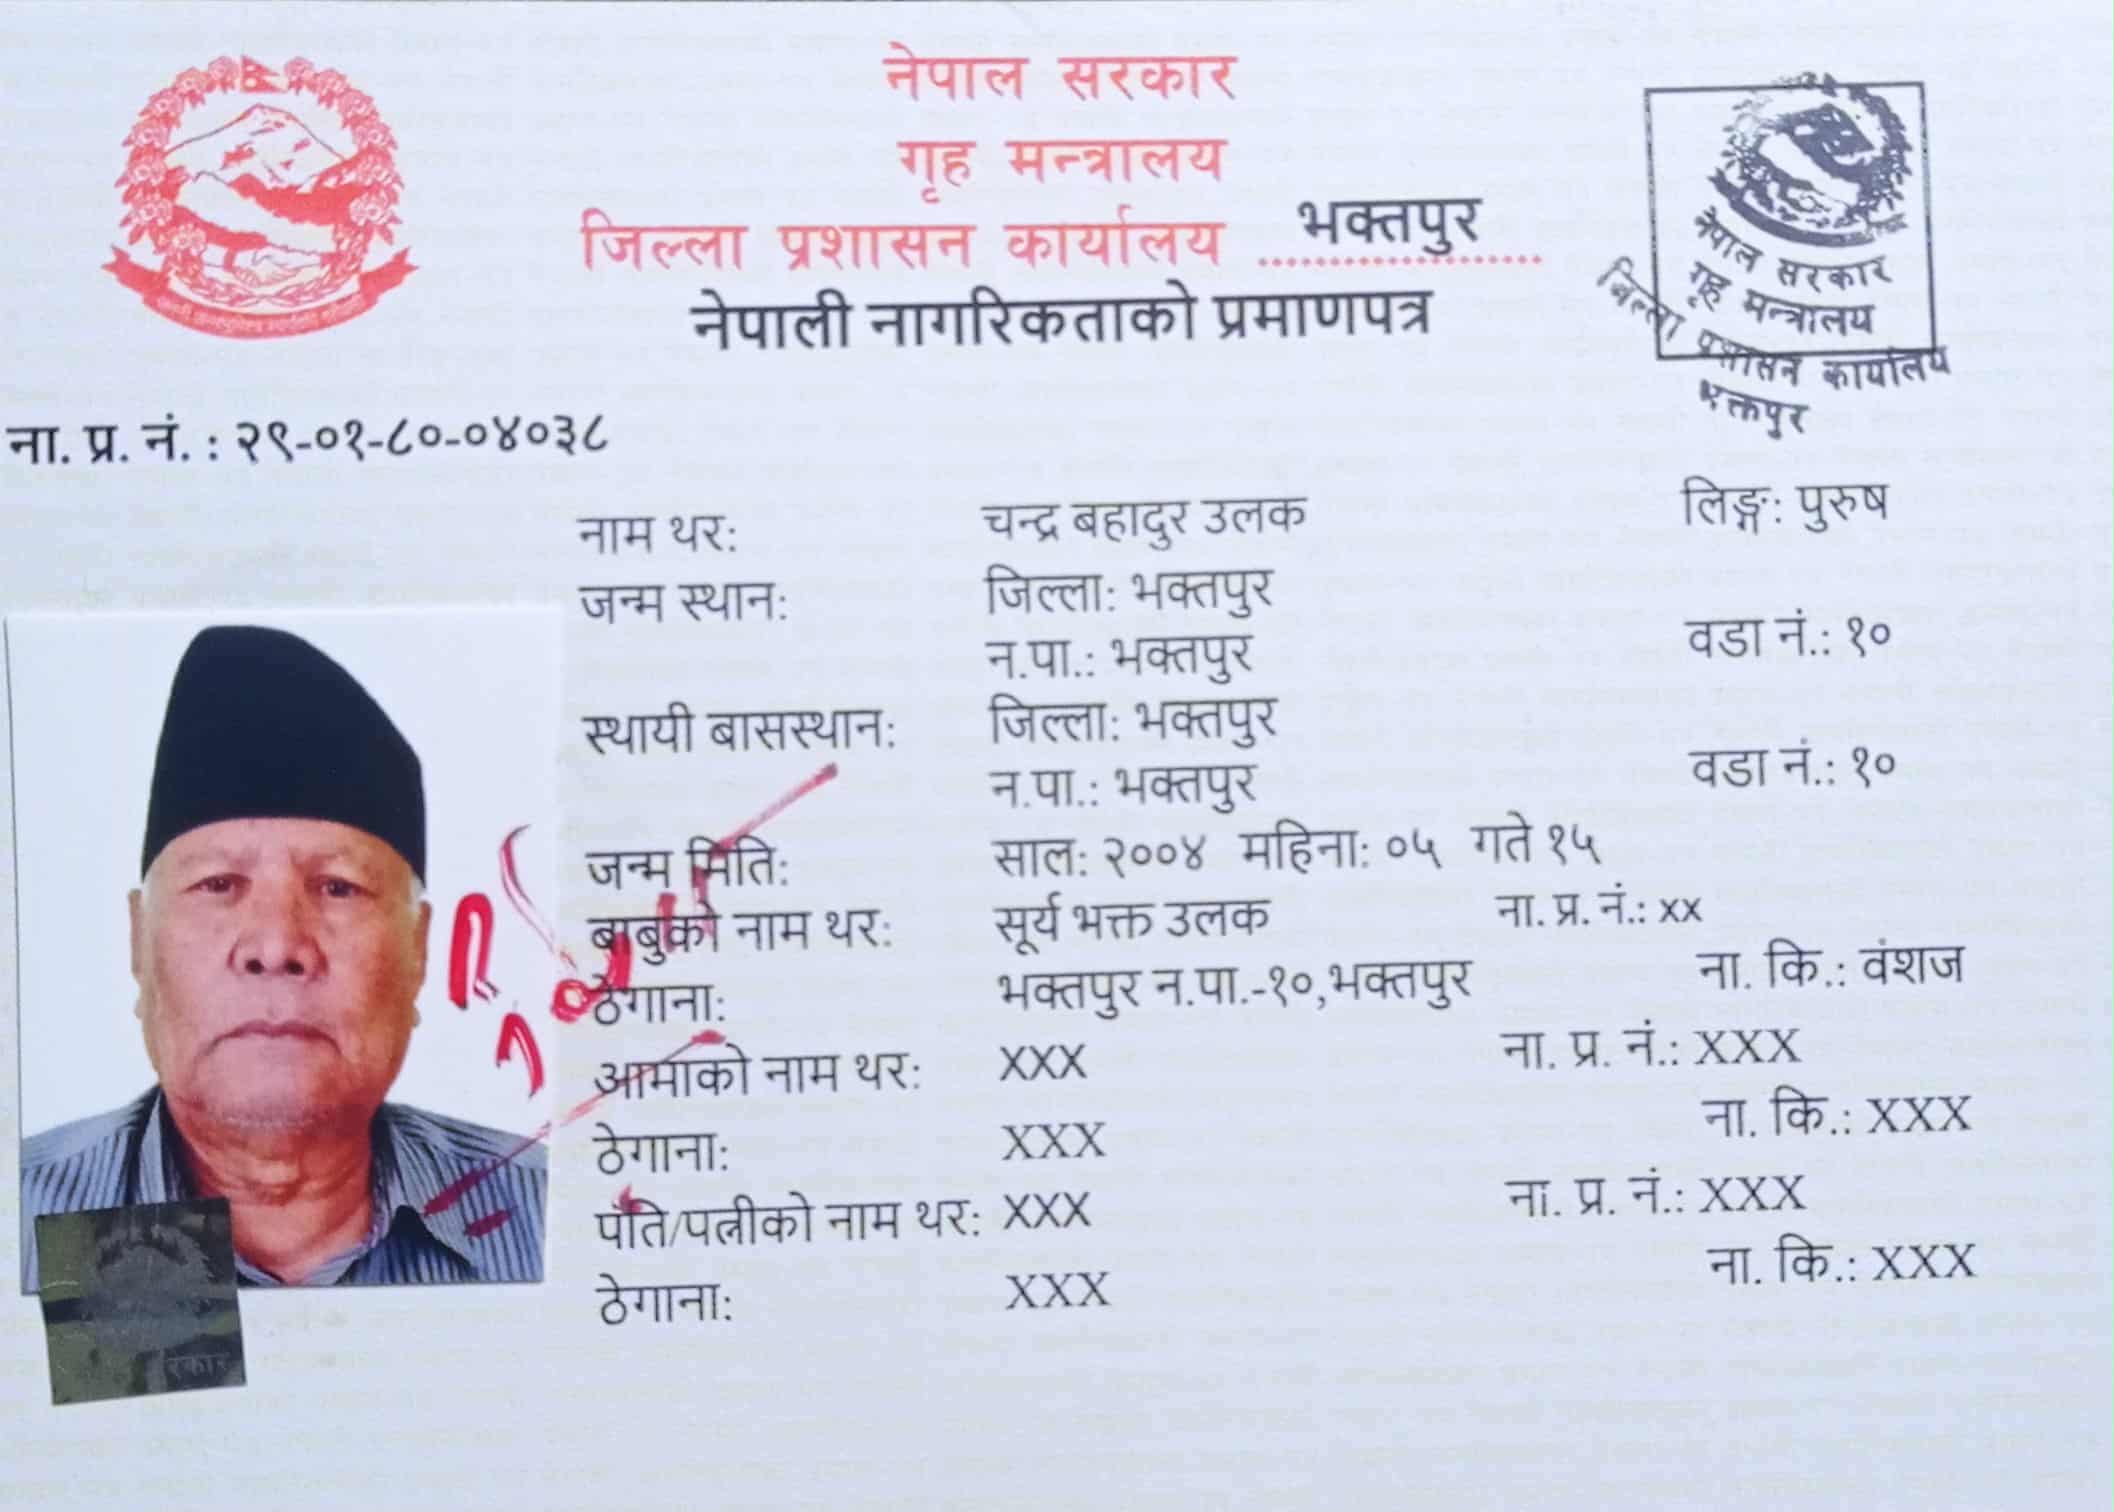 नेपाल सरकार
गृह मन्त्रालय
जिल्ला प्रशासन कार्यालय भक्तपुर
नेपाली नागरिकताको प्रमाणपत्र
नेपाल सरकार
गृह मन्त्रालय
जिल्ला प्रशासन कार्यालय
भक्तपुर
ना. प्र. नं. : २९-०१-८०-०४०३८
नाम थर: चन्द्र बहादुर उलक लिङ्ग: पुरुष
जन्म स्थान: जिल्ला: भक्तपुर
न.पा.: भक्तपुर वडा नं.: १०
स्थायी बासस्थान: जिल्ला: भक्तपुर
न.पा.: भक्तपुर वडा नं.: १०
जन्म मिति: साल: २००४ महिना: ०५ गते १५
बाबुको नाम थर: सूर्य भक्त उलक ना. प्र. नं.: xx
ठेगाना: भक्तपुर न.पा.-१०,भक्तपुर ना. कि.: वंशज
आमाको नाम थर: XXX ना. प्र. नं.: XXX
ठेगाना: XXX ना. कि.: XXX
पति/पत्नीको नाम थर: XXX ना. प्र. नं.: XXX
ठेगाना: XXX ना. कि.: XXX
रकार